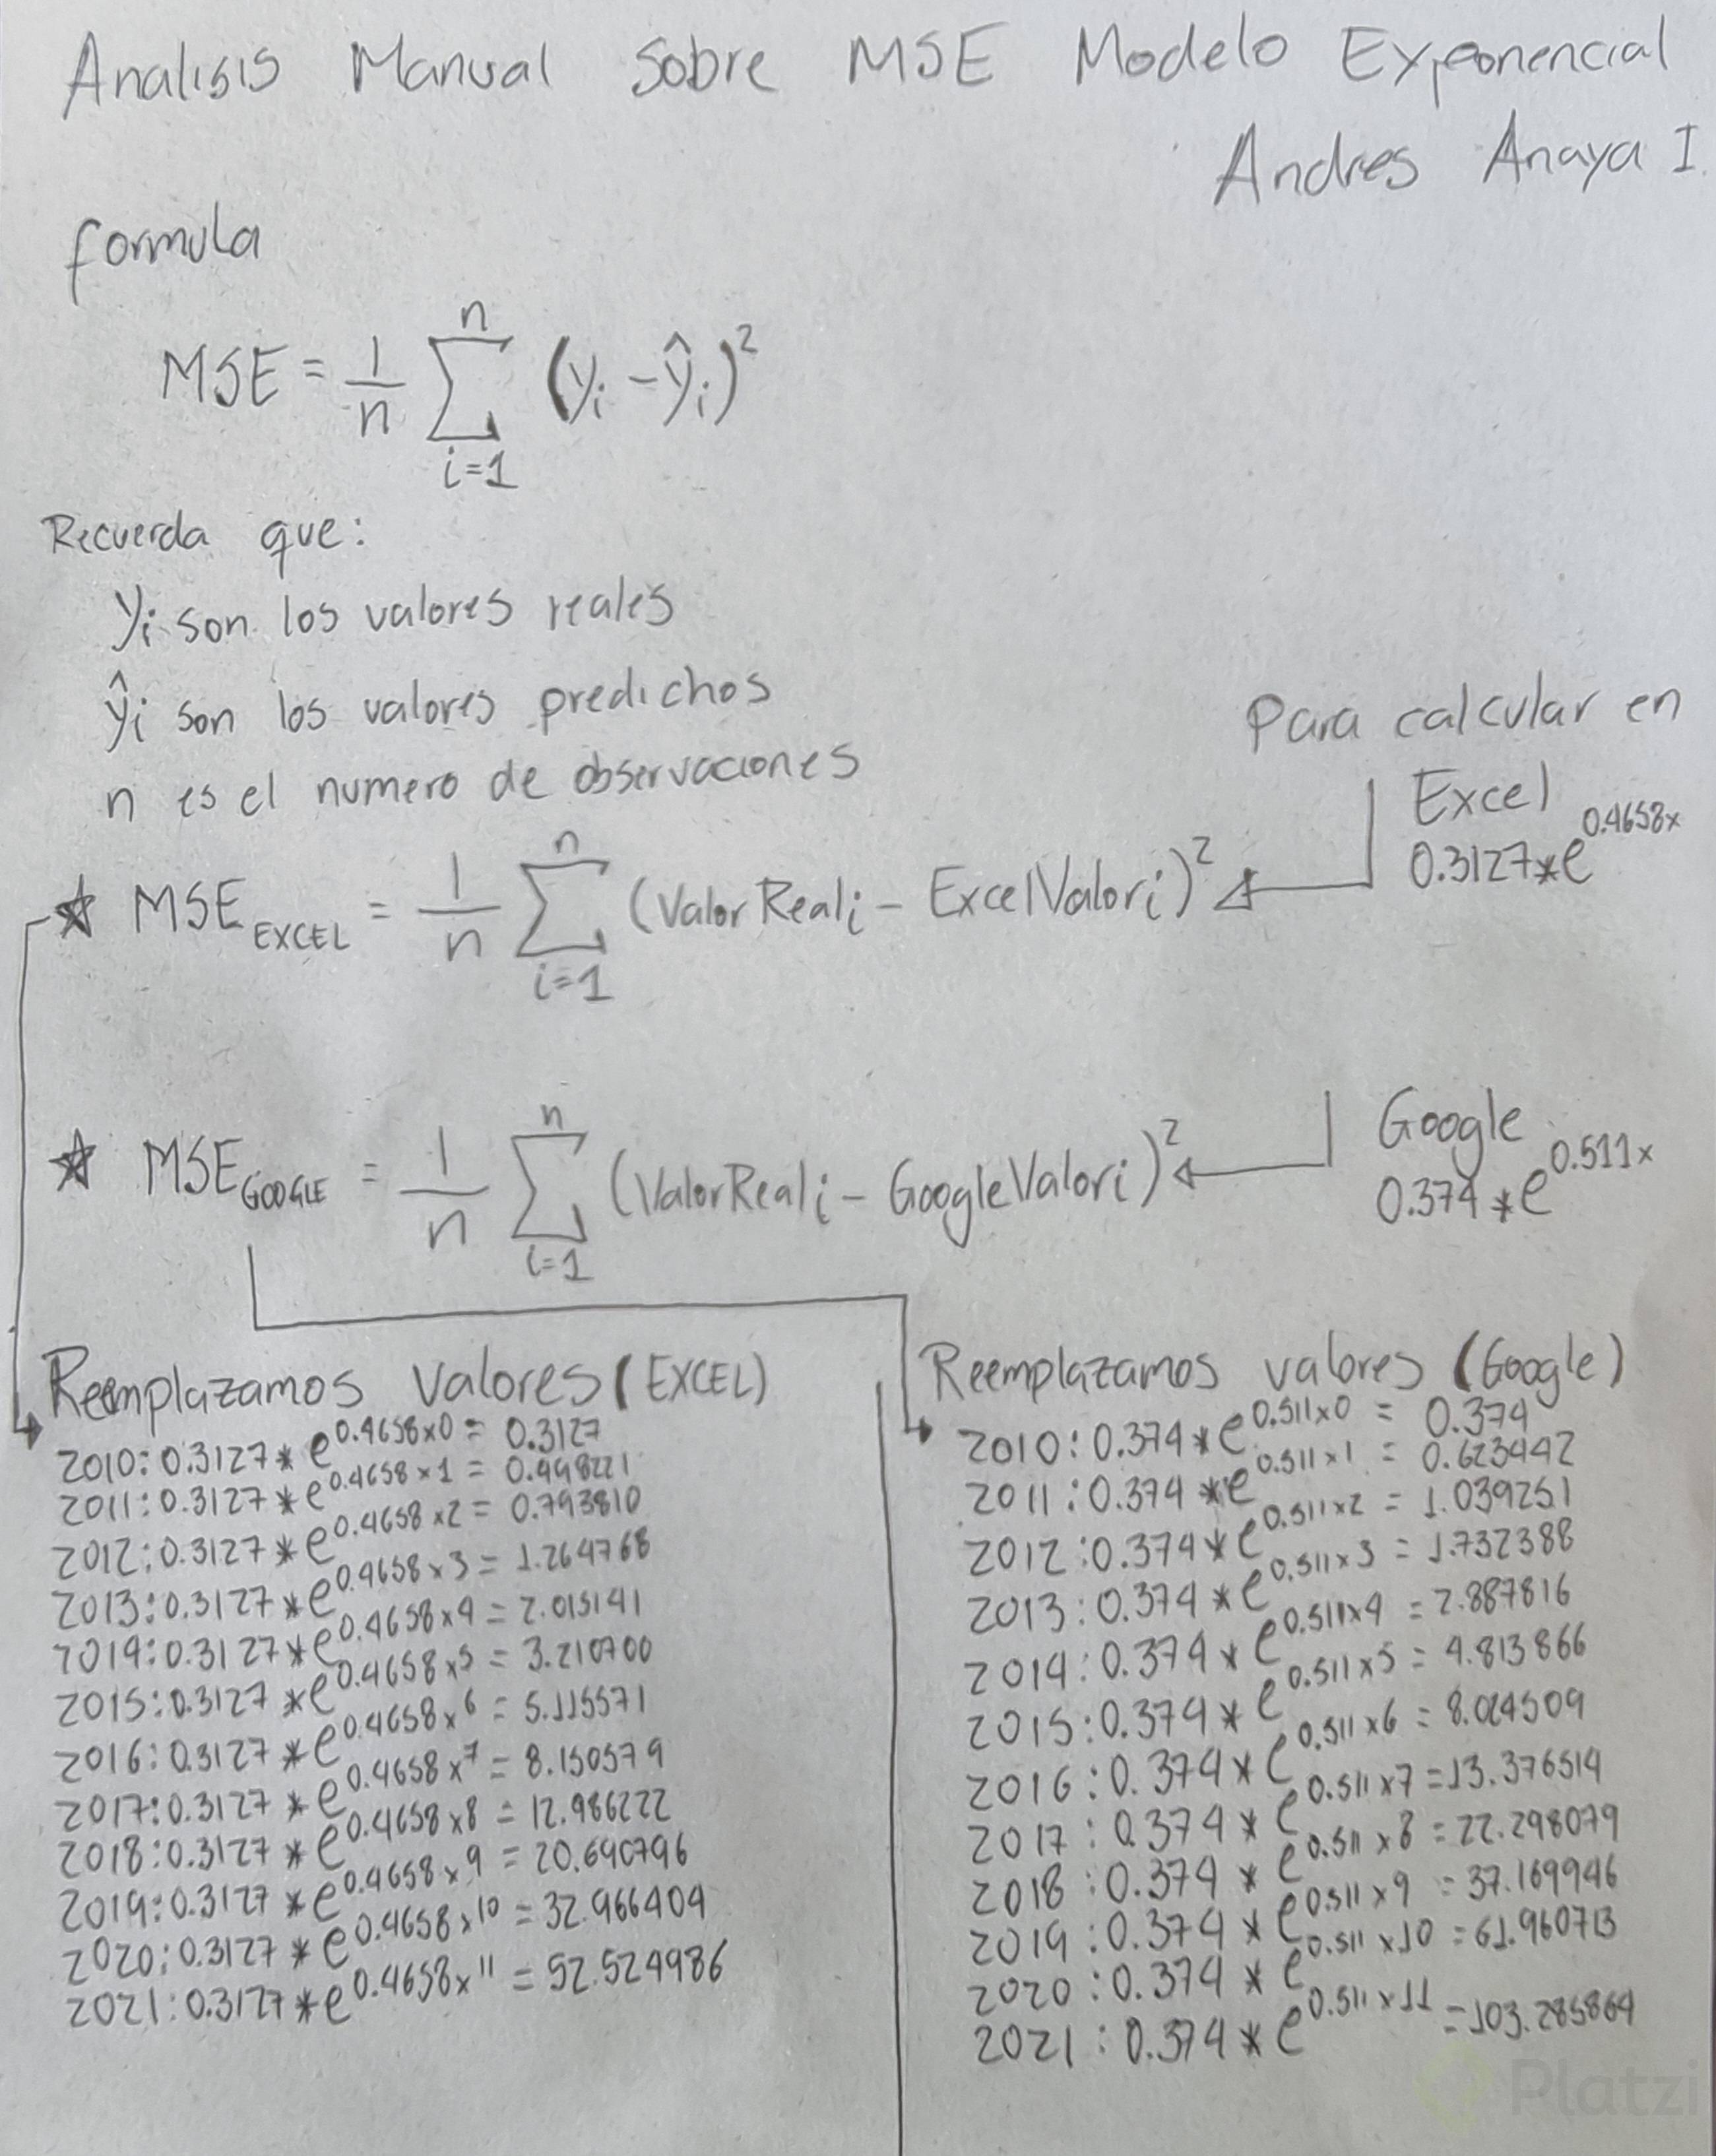 Analisis Manual Sobre MSE Modelo Exponencial
Andres Anaya I.
formula
MSE = 1/n ∑ i=1 n (yi - ŷi)²
Recuerda que:
yi son los valores reales
ŷi son los valores predichos
n es el numero de observaciones
Para calcular en
Excel
0.3127*e^0.4658x
☆ MSE EXCEL = 1/n ∑ i=1 n (Valor Reali - ExcelValori)²
Google
0.374*e^0.511x
☆ MSE GOOGLE = 1/n ∑ i=1 n (ValorReali - GoogleValori)²
Reemplazamos valores (EXCEL)
2010: 0.3127*e^0.4658x0 = 0.3127
2011: 0.3127*e^0.4658x1 = 0.498221
2012: 0.3127*e^0.4658x2 = 0.793810
2013: 0.3127*e^0.4658x3 = 1.264768
2014: 0.3127*e^0.4658x4 = 2.015141
2015: 0.3127*e^0.4658x5 = 3.210700
2016: 0.3127*e^0.4658x6 = 5.115571
2017: 0.3127*e^0.4658x7 = 8.150579
2018: 0.3127*e^0.4658x8 = 12.986222
2019: 0.3127*e^0.4658x9 = 20.690796
2020: 0.3127*e^0.4658x10 = 32.966404
2021: 0.3127*e^0.4658x11 = 52.524986
Reemplazamos valores (Google)
2010: 0.374*e^0.511x0 = 0.374
2011: 0.374*e^0.511x1 = 0.623442
2012: 0.374*e^0.511x2 = 1.039251
2013: 0.374*e^0.511x3 = 1.732388
2014: 0.374*e^0.511x4 = 2.887816
2015: 0.374*e^0.511x5 = 4.813866
2016: 0.374*e^0.511x6 = 8.024509
2017: 0.374*e^0.511x7 = 13.376514
2018: 0.374*e^0.511x8 = 22.298079
2019: 0.374*e^0.511x9 = 37.169946
2020: 0.374*e^0.511x10 = 61.960713
2021: 0.374*e^0.511x11 = 103.285864
Platzi